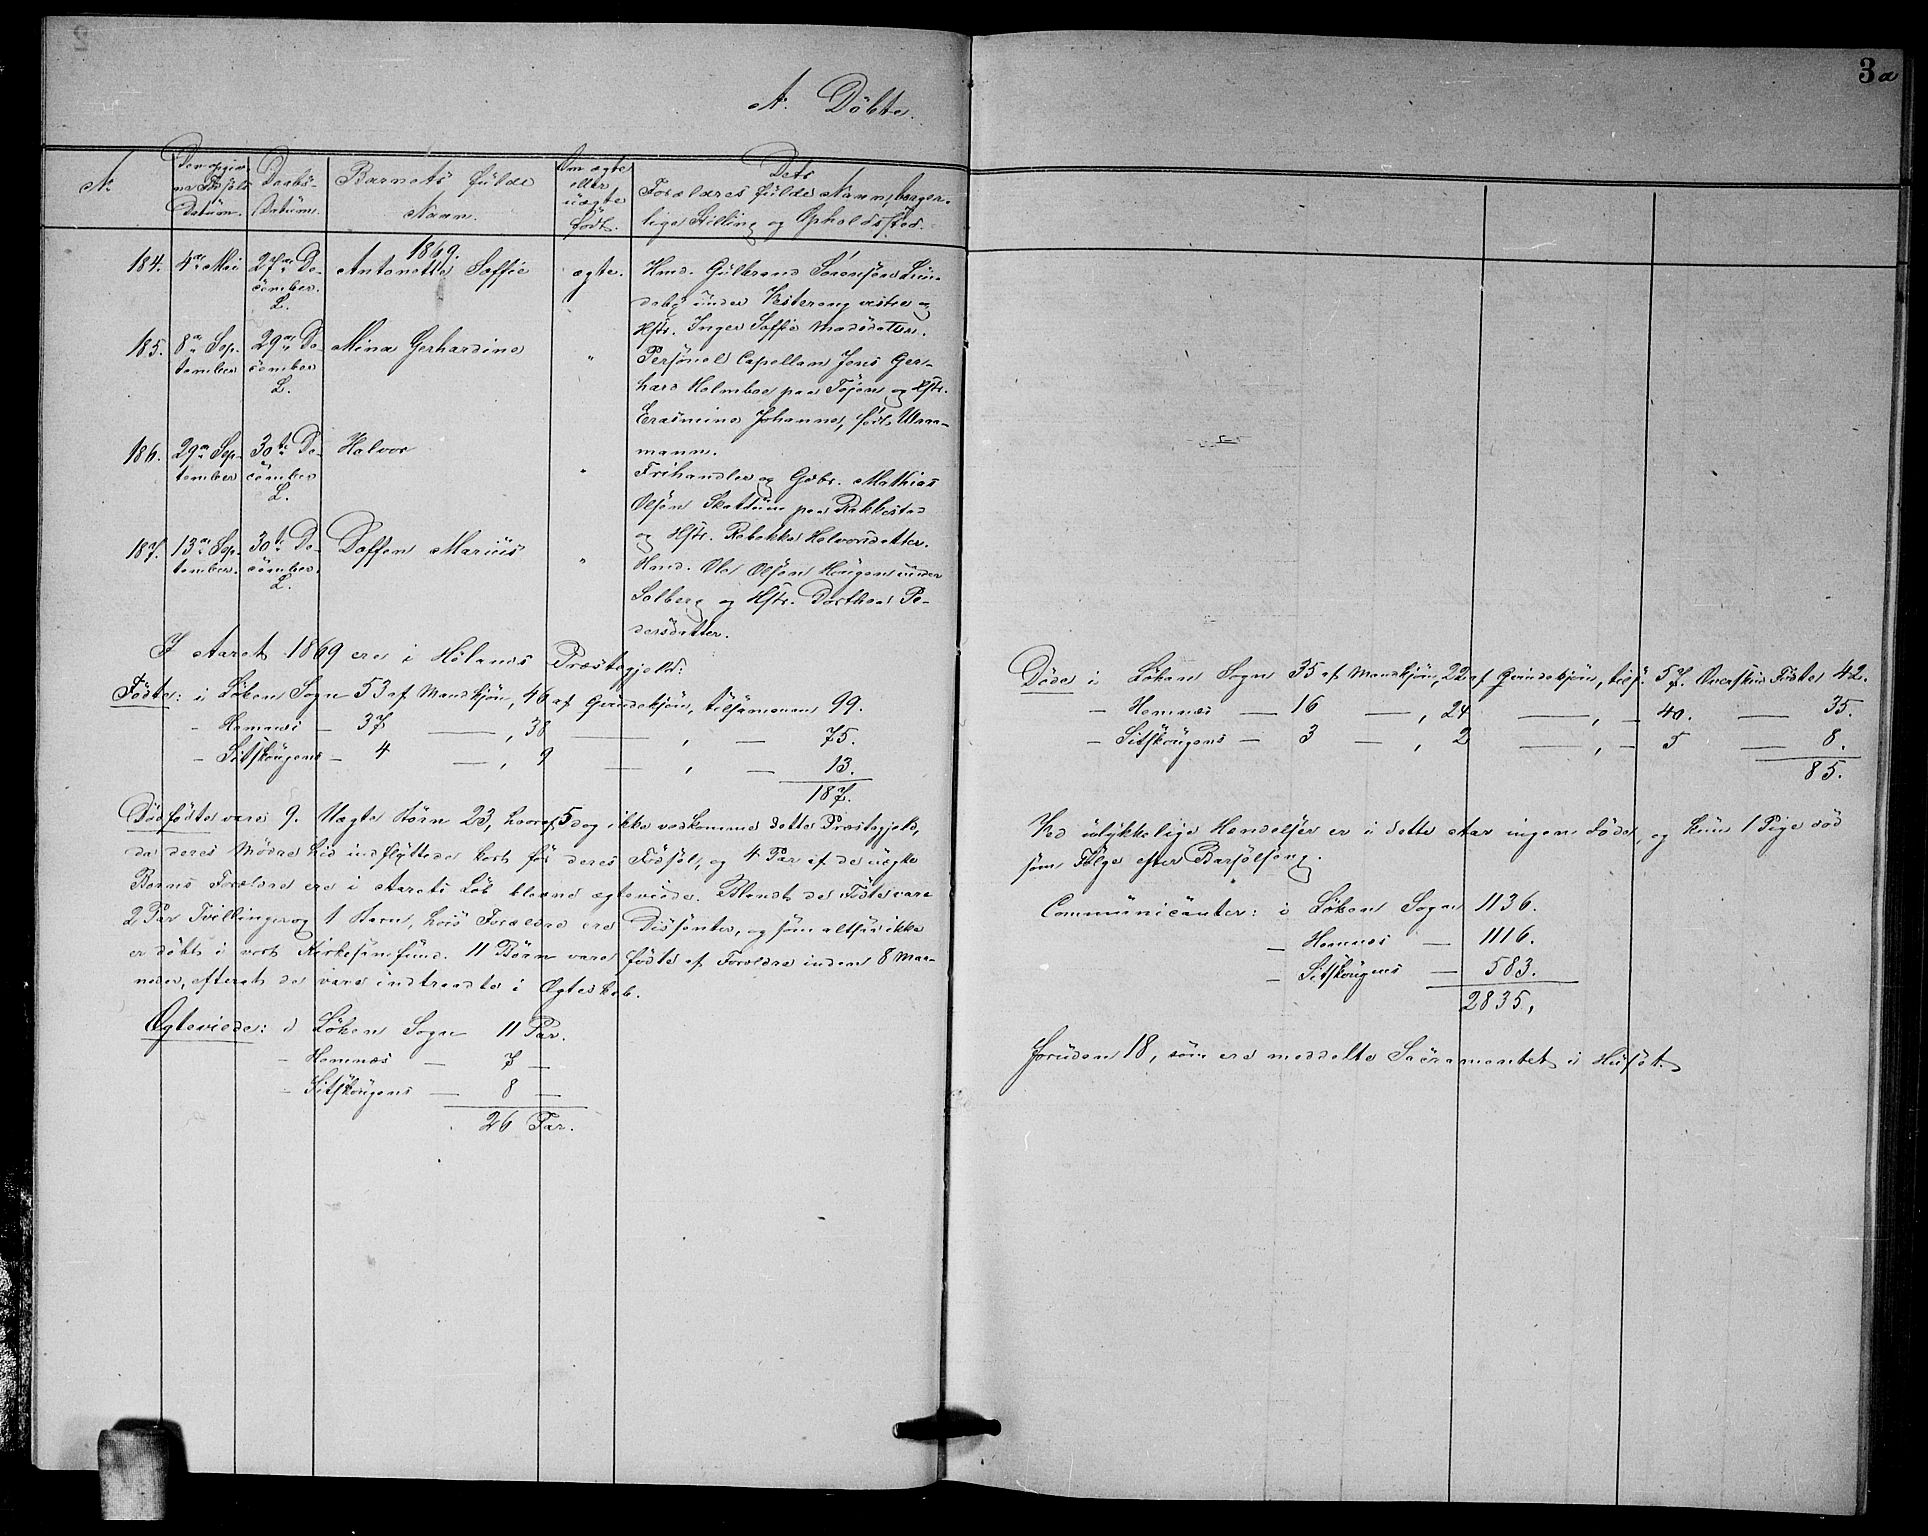 3a
A. Döbte.
N.
Den opgiv-
ne Fødsels
Datum.
Daabs-
Datum.
Barnets fulde
Navn.
Om ægte
eller
uægte
født.
Dets
Forældres fulde Navn, borger-
lige Stilling og Opholdssted.
1869.
184. 4de Mai 27de De- Antonette Soffie ægte. Hmd. Gulbrand Sörensen Lün-
cember. deby under Vestereng vestre og
L. Hstr. Inger Soffie Madsdatter.
185. 8de Sep- 29de De- Mina Gerhardine " Personel Capellan Jens Ger-
tember cember hard Holmboe paa Tøien og Hstr.
L. Erasmine Johanne, født
mann.
186. 29de Sep- 30te De- Halvor " Frihandler og Gbr. Mathias
tember cember Olsen Skattum paa Rakkestad
L. og Hstr. Rebekka Halvorsdatter.
187. 13de Sep- 30te De- Doffen Marius " Hmd. Ole Olsen Haugen under
tember. cember. Solberg og Hstr. Dorthea Pe-
L. dersdatter.
I Aaret 1869 ere i Hölands Præstegjeld:
Födte: i Löken Sogn 53 af Mandkjön, 46 af Qvindekjön, tilsammen 99.
- Hemnæs - 37 — , 38 — , — 75.
- Sitskougens - 4 — , 9 — , — 13.
187.
Dödfödte vare 9. Uægte Börn 23, hvoraf 5 dog ikke vedkomme dette Præstegjeld,
da deres Mödre hid indflyttede kort för deres Födsel, og 4 Par af de uægte
Börns Forældre ere i Aarets Löb blevne ægteviede. Blandt de Födte vare
2 Par Tvillinger og 1 Barn, hvis Forældre ere Dissenter, og som altsaa ikke
er döbt i vort Kirkesamfund. 11 Börn vare födte af Forældre inden 8 Maa-
neder, efterat de vare indtraadte i Ægteskab.
Ægteviede: i Löken Sogn 11 Par.
- Hemnæs — 7 —
- Sitskougens — 8 —
26 Par.
Döde i Löken Sogn 35 af Mandkjön, 22 af Qvindekjön, tils. 57. Overskud Födte 42.
- Hemnæs — 16 — , 24 — , - 40. — 35.
- Sitskougens — 3 — , 2 — , - 5 — 8.
85.
Ved ulykkelige Hændelser er i dette Aar ingen döde, og kun 1 Pige död
som Fölge efter Barselseng.
Communicanter: i Löken Sogn 1136.
- Hemnæs — 1116.
- Sitskougens — 583.
2835,
foruden 18, som ere meddelte Sacramentet i Huset.